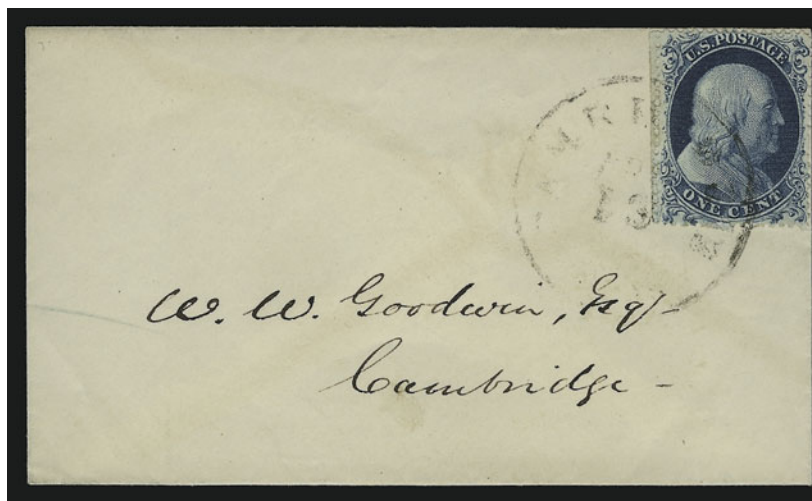 U.S. POSTAGE
ONE CENT
W. W. Goodwin, Esq
Cambridge -